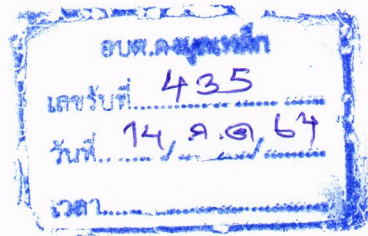 อบต.ดงมูลเหล็ก
เลขรับที่ 435
วันที่ 14 / ต.ค / 64
เวลา